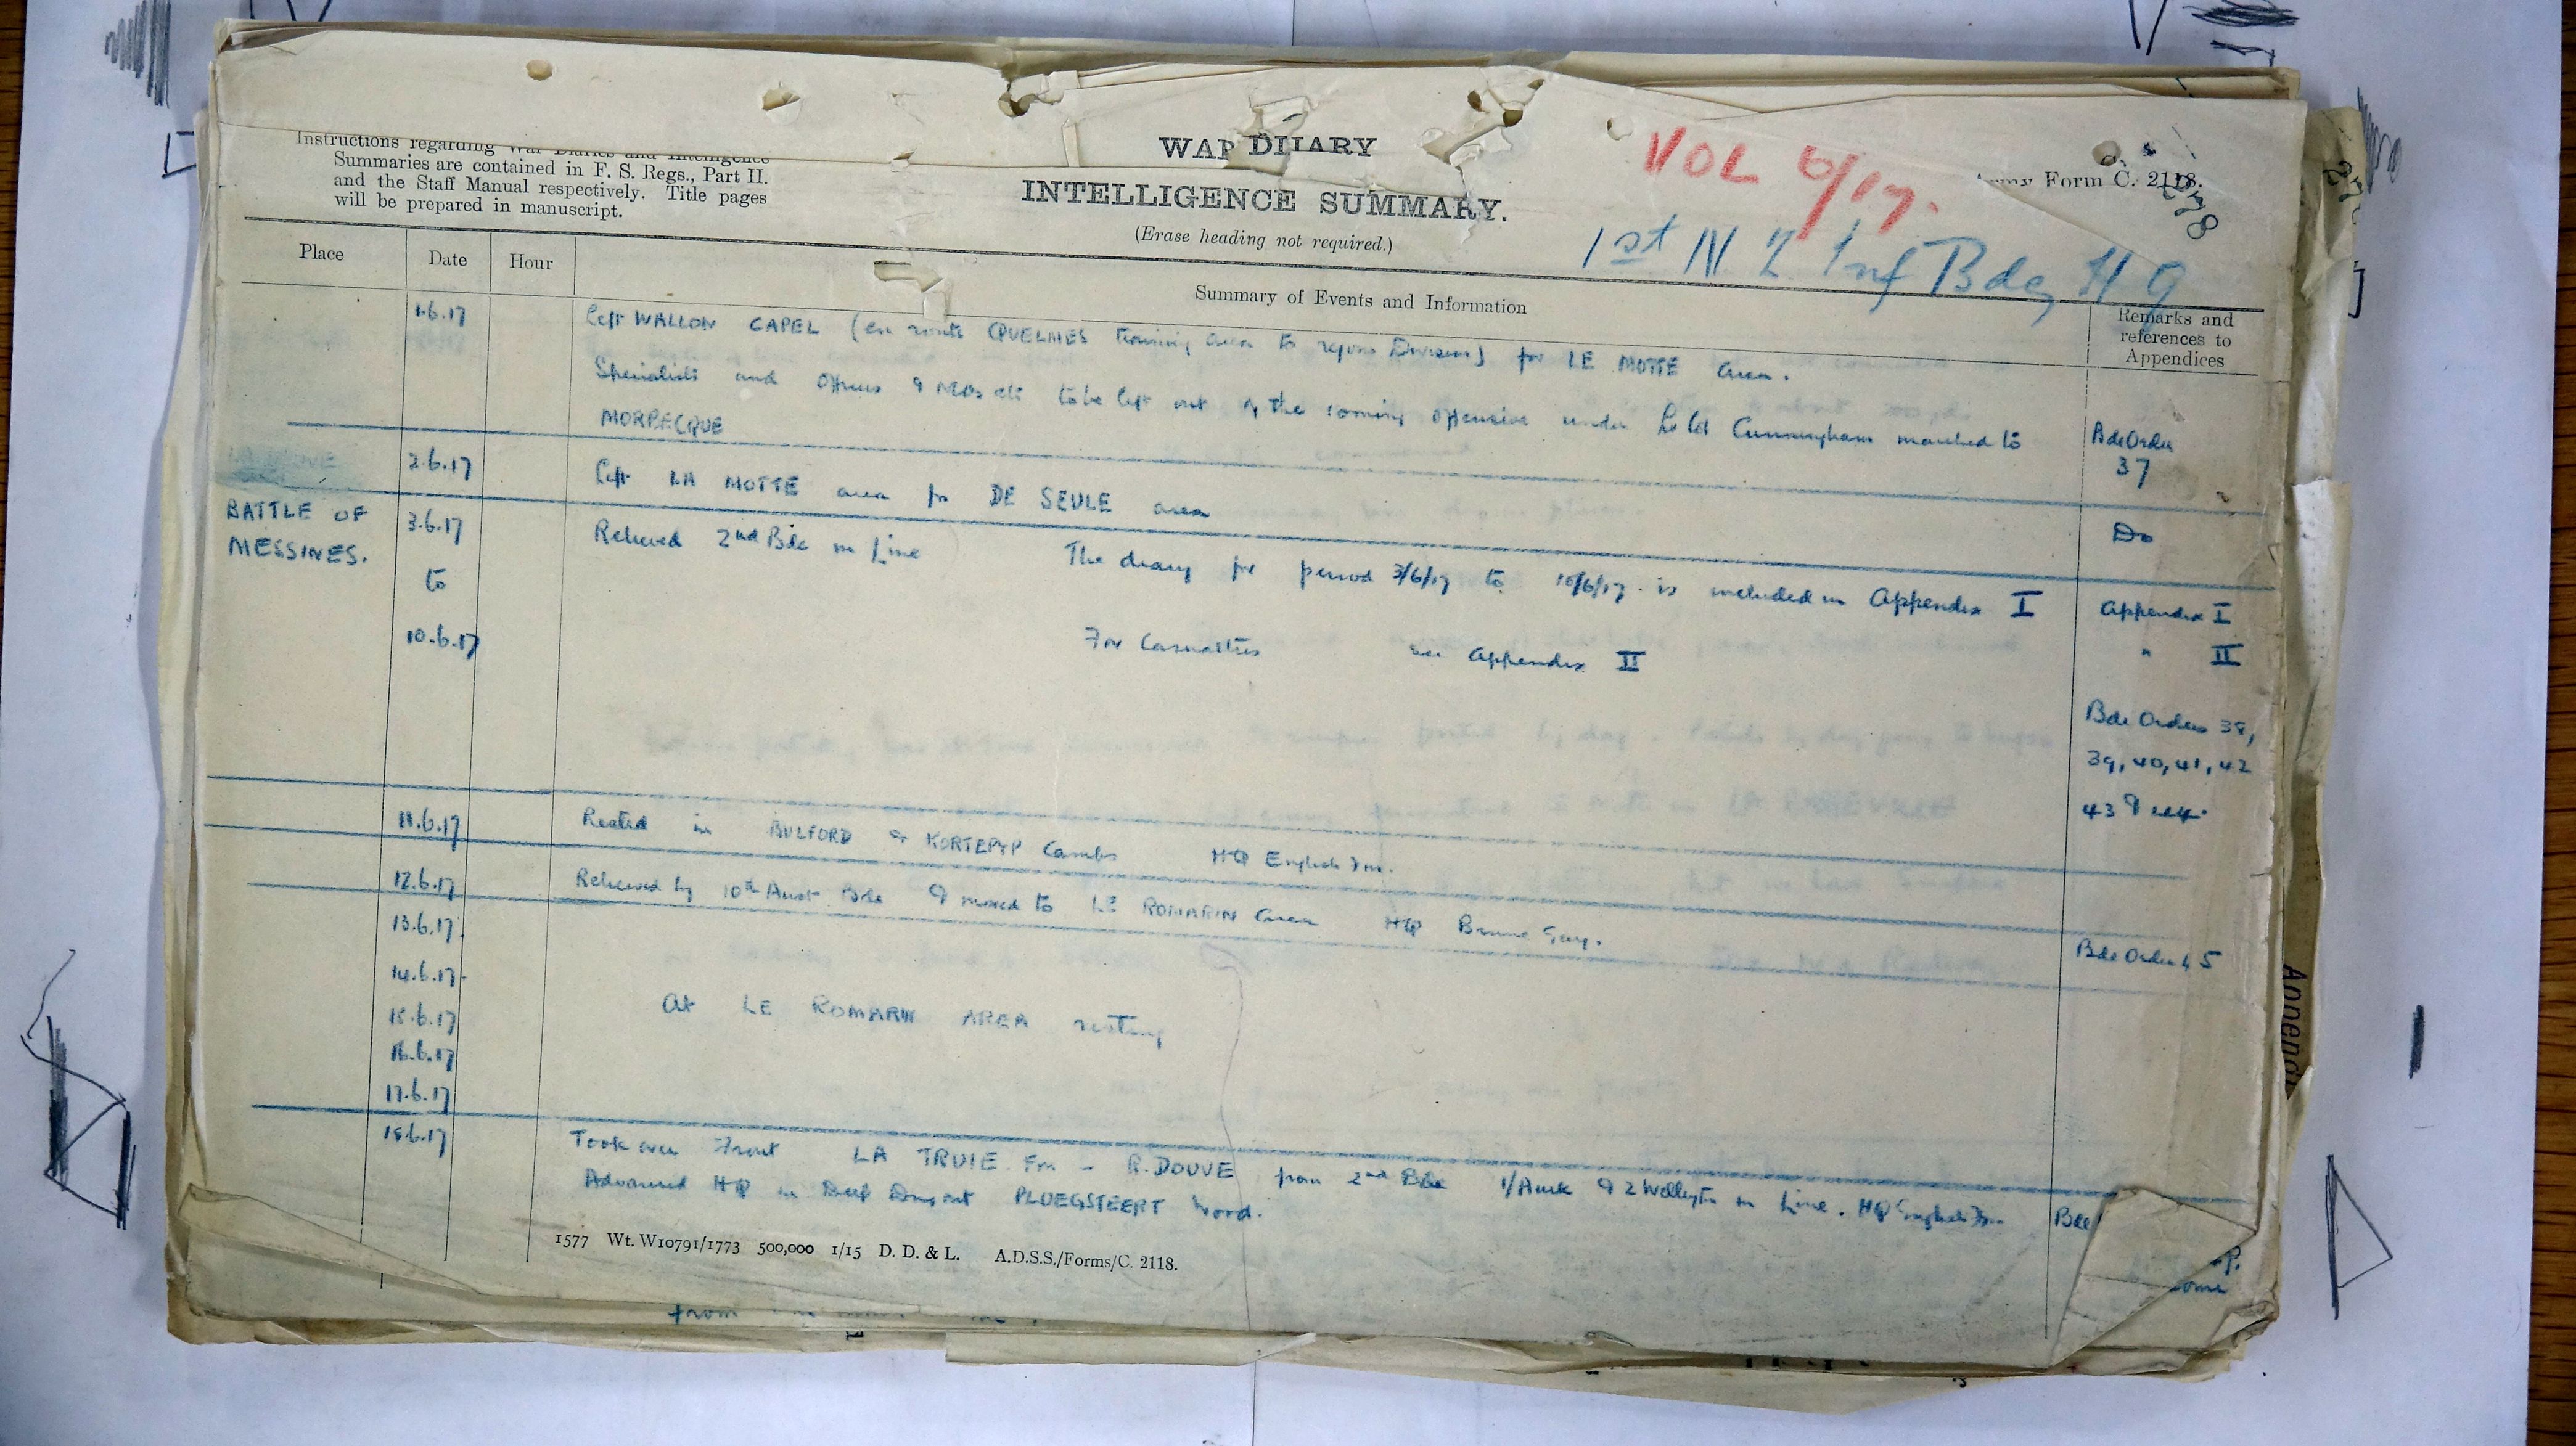 Instructions regarding War Diaries and Intelligence
Summaries are contained in F. S. Regs., Part II.
and the Staff Manual respectively. Title pages
will be prepared in manuscript.
WAR DIARY
INTELLIGENCE SUMMARY.
(Erase heading not required.)
VOL 6/17.
Army Form C. 2118.
1st N Z Inf Bde, H Q
Place Date Hour Summary of Events and Information Remarks and
references to
Appendices
1.6.17 Left WALLON CAPEL (en route QUELMES training area to rejoin Division) for LE MOTTE area.
Specialists and Officers & NCOs etc to be left out of the coming offensive under Lt Col Cunningham marched to
MORBECQUE
Bde Order
37
2.6.17 Left LA MOTTE area for DE SEULE area
Do
BATTLE OF
MESSINES.
3.6.17
to
10.6.17
Relieved 2nd Bde in Line The diary for period 3/6/17 to 10/6/17. is included in Appendix I
For Casualties see Appendix II
Appendix I
" II
Bde Orders 38,
39, 40, 41, 42
43 & 44.
11.6.17 Rested in BULFORD & KORTEPYP Camps HQ English Fm.
12.6.17 Relieved by 10th Aust Bde & moved to LE ROMARIN area HQ Brune Gay.
Bde Order 45
13.6.17.
14.6.17.
15.6.17
16.6.17
17.6.17
At LE ROMARIN AREA resting
18.6.17 Took over Front LA TRUIE Fm - R. DOUVE from 2nd Bde 1/Auck & 2 Wellington in Line. HQ English Fm
Advanced HQ in Deep Dugout PLOEGSTEERT Wood.
Bde
1577 Wt. W10791/1773 500,000 1/15 D. D. & L. A.D.S.S./Forms/C. 2118.
from